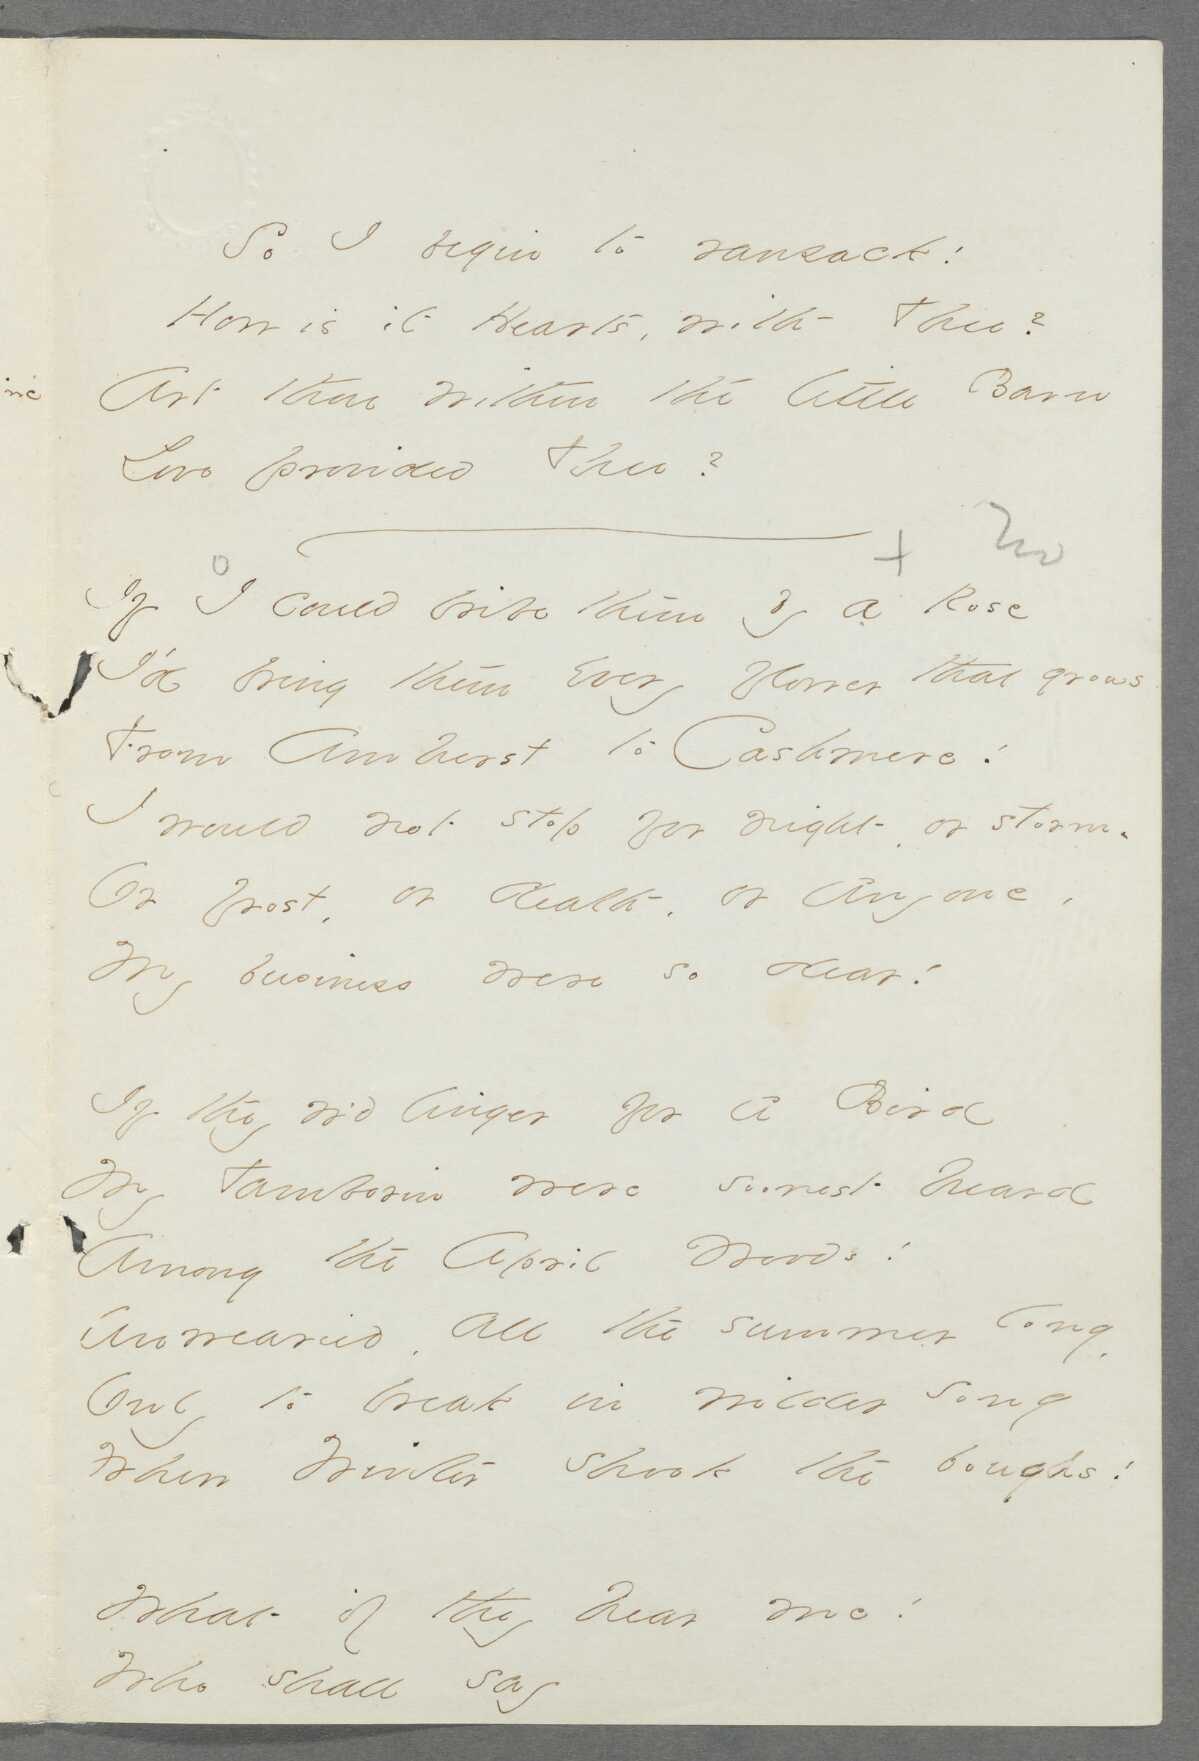 So I begin to ransack!
How is it Hearts, with Thee?
Art thou within the little Barn
Love provided Thee?
+ No
o
If I could bribe them by a Rose
I'd bring them every flower that grows
From Amherst to Cashmere!
I would not stop for night, or storm.
Or frost, or death, or anyone,
My business were so dear!
If they w'd linger for a Bird
My Tamborin were soonest heard
Among the April Woods!
Unwearied, all the summer long,
Only to break in wilder song
When Winter shook the boughs!
What if they hear me!
Who shall say